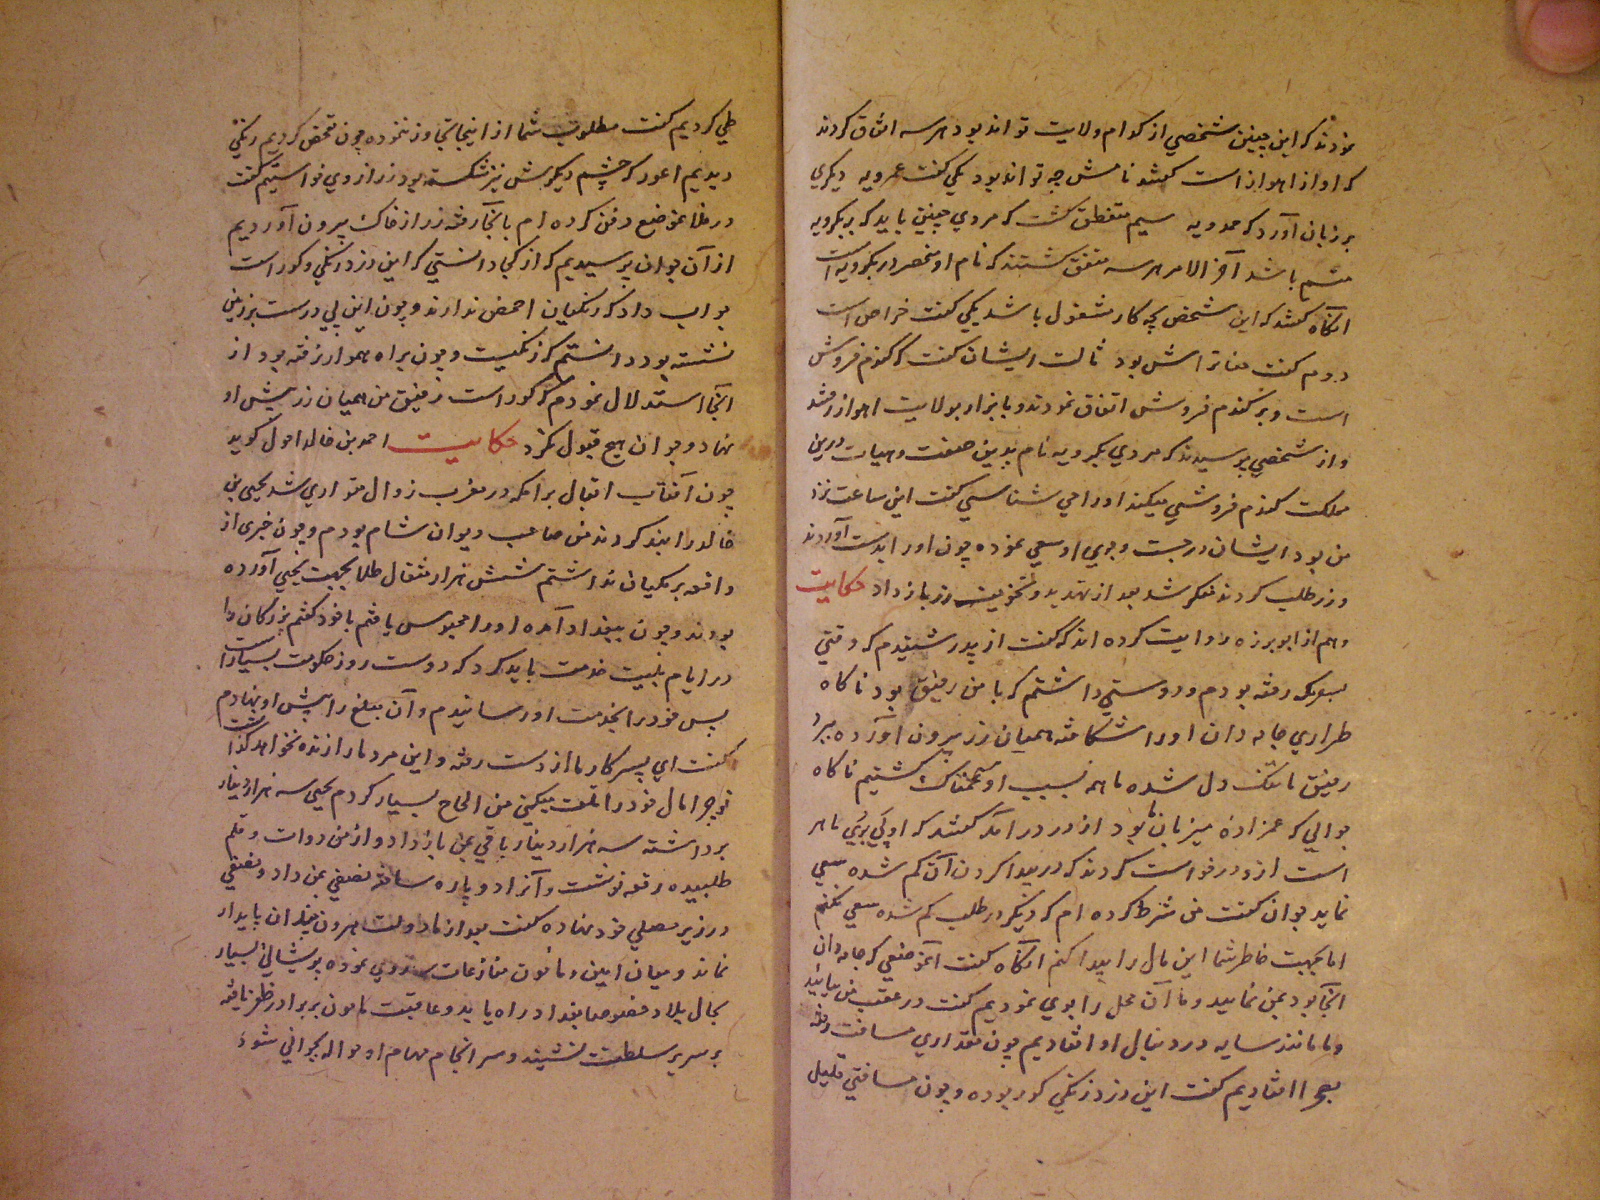 نمودند که این چنین شخصی از کدام ولایت تواند بود هر سه اتفاق کردند
که او از اهواز است گفتند نامش چه تواند بود یکی گفت عمرویه دیگری
بر زبان آورد که حمدویه سیم متفطن گشت که مردی چنین باید که بکرویه
باشد آخر الامر هر سه متفق گشتند که نام او منحصر در بکرویه است
انگاه گفتند که این شخص بچه کار مشغول باشد یکی گفت خراص است
دوم گفت تراش بود ثالث ایشان گفت که گندم فروش
است و بر گندم فروش اتفاق نمودند و بولایت اهواز رفتند
و از شخصی پرسیدند که مردی بکرویه نام بدین صفت و هیات درین
مملکت گندم فروشی میکند او را می شناسی گفت این ساعت نزد
من بود ایشان در جست و جوی او سعی نموده چون او را بدست آوردند
و زر طلب کردند منکر شد بعد از تهدید و تخویف زر باز داد حکایت
و هم از ابو برزه روایت کرده اند که گفت از پدر شنیدم که وقتی
بمکه رفته بودم و دوستی داشتم که با من رفیق بود ناگاه
طراری جامه دان او را شکافته همیان زر بیرون آورده ببرد
رفیق ما تنگ دل شده ما همه بسبب او غمناک گشتیم ناگاه
جوانی که عمزاده میزبان ما بود از در درآمد گفتند که او پی بری ماهر
است ازو درخواست کردند که در پیدا کردن آن گم شده سعی
نماید جوان گفت من شرط کرده ام که دیگر در طلب گم شده سعی نکنم
اما بجهت خاطر شما این مال را پیدا کنم انگاه گفت آن موضعی که جامه دان
انجا بود بمن نمایید و ما آن محل را بوی نمودیم گفت در عقب من بیایید
و ما مانند سایه در دنبال او افتادیم چون مقداری مسافت رفته
بصحرا افتادیم گفت این دزد زنگی کور بوده و چون مسافتی قلیل
طی کردیم گفت مطلوب شما از اینجا تجاوز ننموده چون تفحص کردیم زنگی
دیدیم اعور که چشم دیگرش نیز شکسته بود زر از وی خواستیم گفت
در فلان موضع دفن کرده ام بانجا رفته زر از خاک بیرون آوردیم
از آن جوان پرسیدیم که از کجا دانستی که این دزد زنگی و کور است
جواب داد که زنگیان اخمص ندارند و چون این پی درست بر زمین
نشسته بود دانستم که زنگیست و چون براه هموار نرفته بود از
انجا استدلال نمودم که کور است رفیق من همیان زر پیش او
نهاد و جوان هیچ قبول نکرد حکایت احمد بن خالد احول گوید
چون آفتاب اقبال برامکه در مغرب زوال متواری شد یحیی بن
خالد را بند کردند من صاحب دیوان شام بودم و چون خبری از
واقعه برمکیان نداشتم شش هزار مثقال طلا بجهت یحیی آورده
بودند و چون ببغداد آمده او را محبوس یافتم با خود گفتم بزرگان را
در ایام بلیت خدمت باید کرد که دوست روز حکومت بسیار است
پس خود را بخدمت او رسانیدم و آن مبلغ را پیش او نهادم
گفت ای پسر کار ما از دست رفته و این مرد ما را زنده نخواهد گذاشت
تو چرا مال خود را تلف میکنی من الحاح بسیار کردم یحیی سه هزار دینار
برداشته سه هزار دینار باقی بمن باز داد و از من دوات و قلم
طلبیده رقعه نوشت و آنرا دو پاره ساخته نصفی بمن داد و نصفی
در زیر مصلی خود نهاده گفت بعد از ما دولت هرون چندان پایدار
نماند و میان امین و مأمون منازعات روی نموده پریشانی بسیار
بحال بلاد خصوصا بغداد راه یابد و عاقبت مامون بر برادر ظفر یافته
بر سریر سلطنت نشیند و سر انجام مهام او حواله بجوانی شود